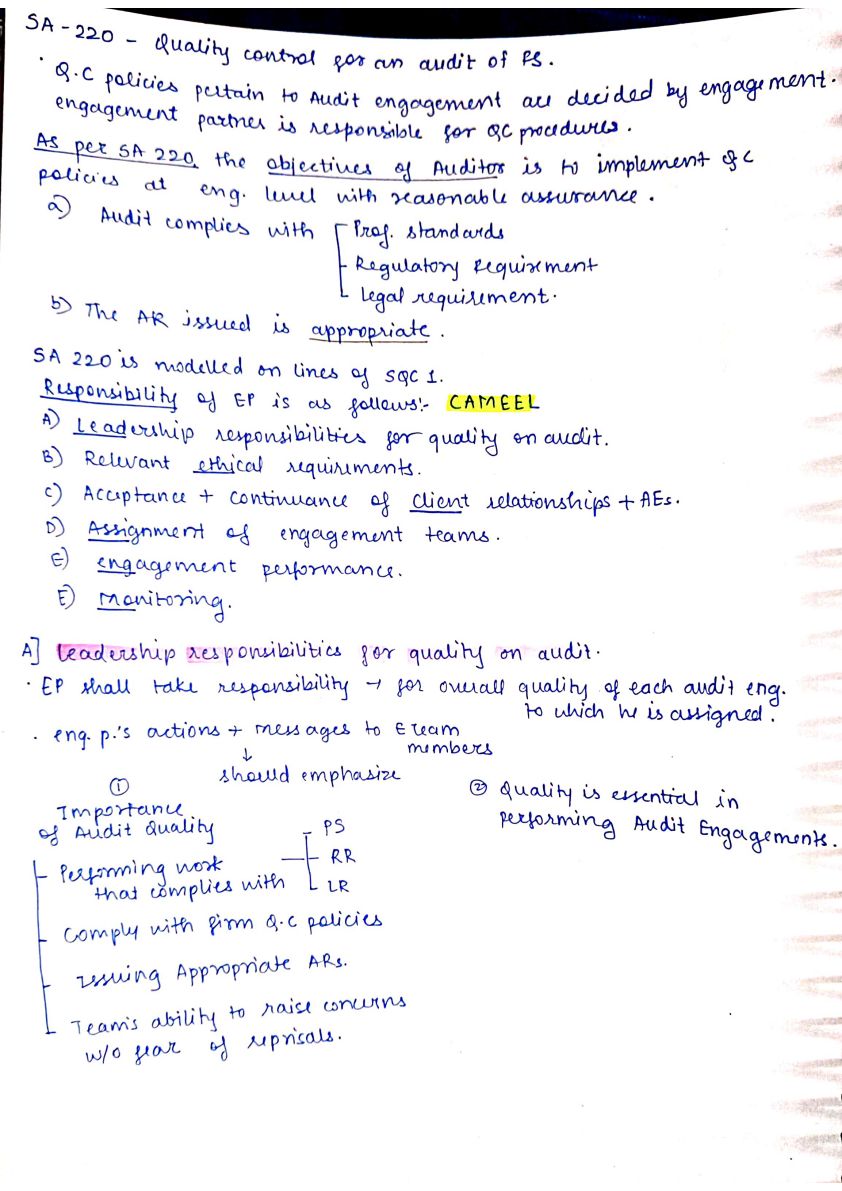 SA-220 - Quality control for an audit of FS.
· Q.C policies pertain to Audit engagement are decided by engagement.
engagement partner is responsible for QC procedures.
As per SA 220, the objectives of Auditor is to implement QC
policies at eng. level with reasonable assurance.
a) Audit complies with Prof. standards
Regulatory Requirement
Legal requirement.
b) The AR issued is appropriate.
SA 220 is modelled on lines of SQC 1.
Responsibility of EP is as follows:- CAMEEL
A) Leadership responsibilities for quality on audit.
B) Relevant ethical requirements.
C) Acceptance + continuance of client relationships + AEs.
D) Assignment of engagement teams.
E) engagement performance.
E) Monitoring.
A] Leadership responsibilities for quality on audit.
· EP shall take responsibility → for overall quality of each audit eng.
to which he is assigned.
· eng. p.'s actions + messages to E team
members
↓
should emphasize
① Importance
of Audit Quality
Performing work
that complies with
PS
RR
LR
Comply with firm Q.C policies
issuing Appropriate ARs.
Team's ability to raise concerns
w/o fear of reprisals.
② Quality is essential in
performing Audit Engagements.